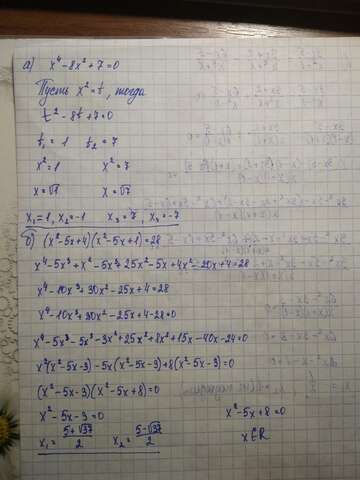 а) x⁴-8x²+7=0
Пусть x²=t, тогда
t²-8t+7=0
t₁=1 t₂=7
x²=1 x²=7
x=√1 x=√7
x₁=1, x₂=-1 x₃=7, x₄=-7
б) (x²-5x+4)(x²-5x+1)=28
x⁴-5x³+x²-5x³+25x²-5x+4x²-20x+4=28
x⁴-10x³+30x²-25x+4=28
x⁴-10x³+30x²-25x+4-28=0
x⁴-5x³-5x³-3x²+25x²+8x²+15x-40x-24=0
x²(x²-5x-3)-5x(x²-5x-3)+8(x²-5x-3)=0
(x²-5x-3)(x²-5x+8)=0
x²-5x-3=0 x²-5x+8=0
x₁=(5+√37)/2 x₂=(5-√37)/2 x∈R